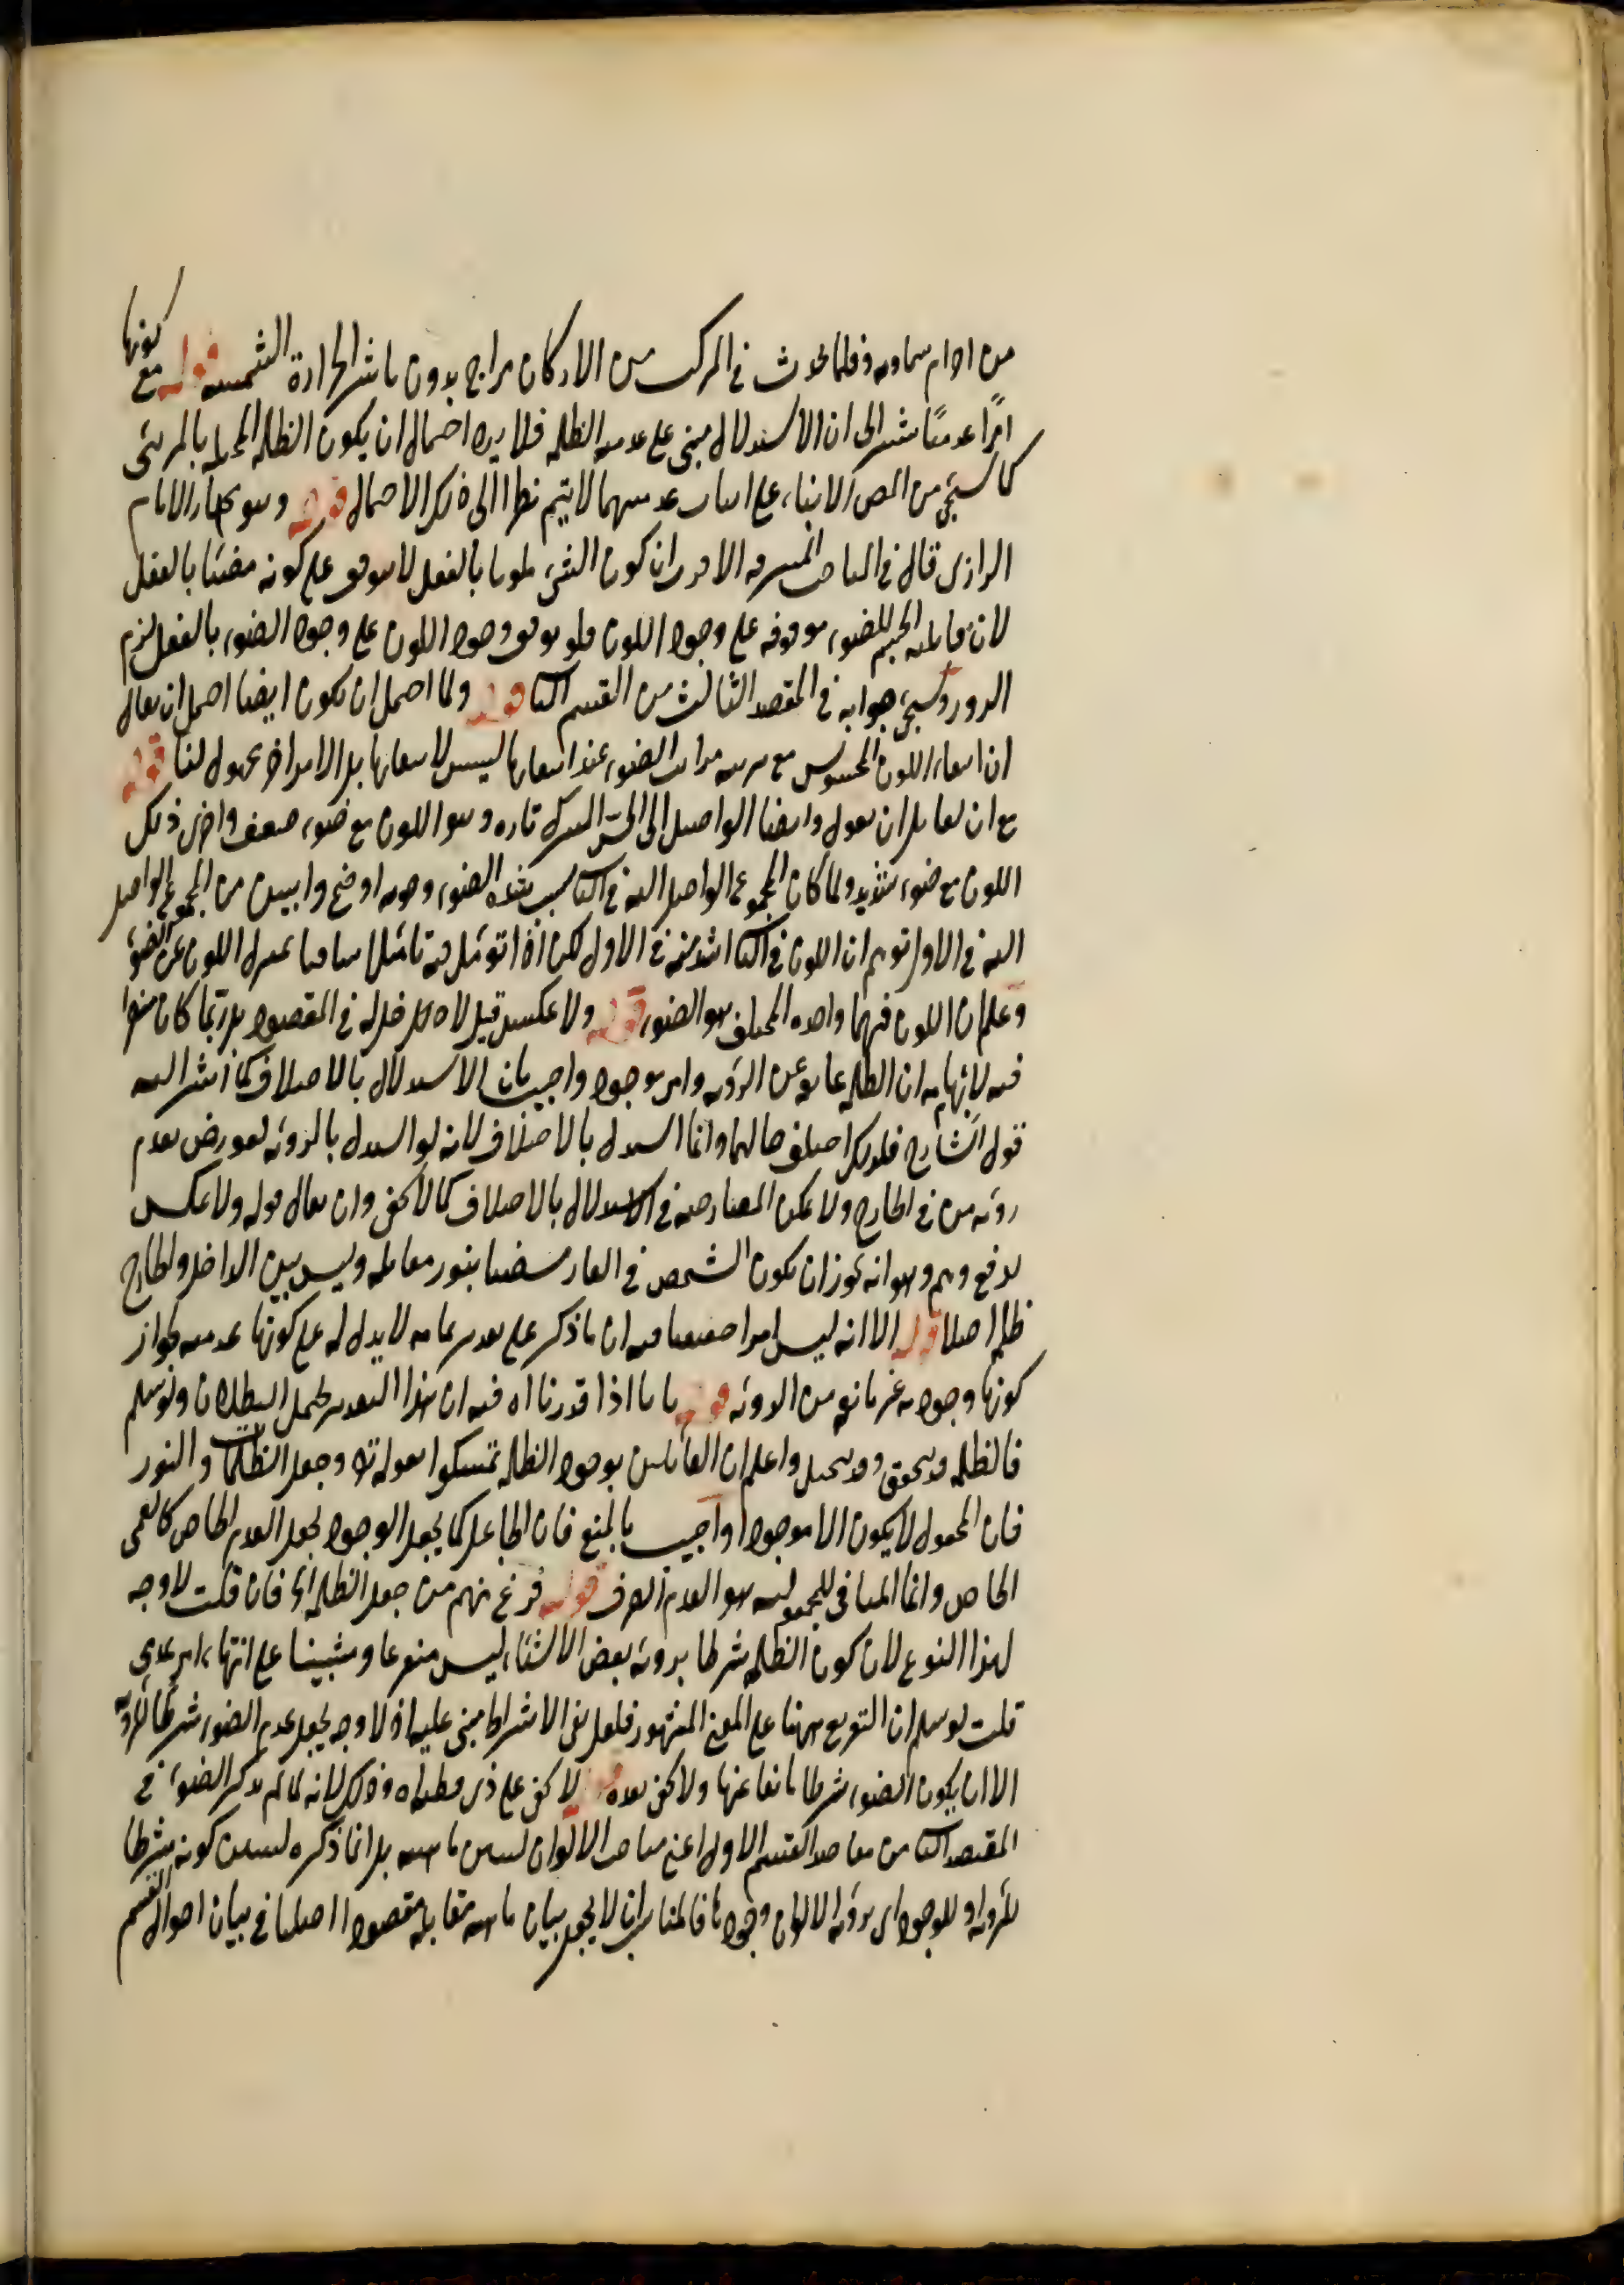 من اجرام سماويه وقلما يحدث في المركب من الاركان مزاج بدون تاثير الحرارة الشمسيه قوله مع كونها
امرا عدميا يشير الى ان الاستدلال مبنى على عدميه الظلمه فلا يرد احتمال ان يكون الظلمه المحيطه بالمرئى
كما سيجئ من المص الابناء على اثبات عدميتهما لا يتم نظرا الى ذلك الاحتمال قوله وهو مختار الامام
الرازى قال في المباحث المشرقيه الاقرب ان كون الشئ ملونا بالفعل لا يتوقف على كونه مضيئا بالفعل
لان قابليه الجسم للضوء موقوفه على وجود اللون فلو توقف وجود اللون على وجود الضوء بالفعل لزم
الدور وسيجئ جوابه في المقصد الثالث من القسم الثانى قوله ولما احتمل ان يكون ايضا احتمل ان يقال
ان انتفاء اللون المحسوس مع مرتبه مراتب الضوء عند انتفائها ليس لانتفائها بل الامر اخر مجهول لنا قوله
مع ان لقائل ان يقول وايضا الواصل الى الحس المشترك تاره وهو اللون مع ضوء ضعيف واخرى ذلك
اللون مع ضوء شديد ولما كان المجموع الواصل اليه في الثانى بسبب شده الضوء وقوته اوضح وابين من المجموع الواصل
اليه في الاول توهم ان اللون في الثانى اشد منه في الاول لكن اذا تؤمل فيه تاملا شافيا تميز اللون عن الضوء
وعلم ان اللون فيهما واحد والمختلف هو الضوء قوله ولا عكس قيل لا دخل له في المقصود بل ربما كان مضرا
فيه لايهامه ان الظلمه عائقه عن الرؤيه وامر موجود واجيب بان الاستدلال بالاختلاف كما اشار اليه
قول الشارح فلذلك اختلف حالهما وانما استدل بالاختلاف لانه لو استدل بالرؤيه لعورض بعدم
رؤيه من في الخارج ولا يمكن المعارضه في الاستدلال بالاختلاف كما لا يخفى وان يقال قوله ولا عكس
لدفع وهم وهو انه يجوز ان يكون الشخص في الغار مستضيئا بنور مقابله وليس بين الداخل والخارج
ظلمه اصلا قوله الا انه ليس امرا حقيقيا فيه ان ما ذكر على تقدير تمامه لا يدل له على كونها عدميه لجواز
كونها وجوديه غير مانعه من الرؤيه قوله بانا اذا قدرنا اه فيه ان هذا التقدير يحتمل البطلان ولو سلم
فالظلمه قد يتحقق وقد يتخيل واعلم ان القائلين بوجود الظلمه تمسكوا بقوله تعالى وجعل الظلمات والنور
فان المجعول لا يكون الا موجودا واجيب بالمنع فان الجاعل كما يجعل الوجود يجعل العدم الخاص كالعمى
الخاص وانما المنافى للمجعوليه هو العدم الصرف قوله فرع منهم من جعل الظلمه اه فان قلت لا وجه
لهذا النوع لان كون الظلمه شرطا برؤيه بعض الاشياء ليس منوعا ومبينيا على انتهاء امر عدمى
قلت لو سلم ان التفريع ههنا على المعنى المشهور فلعل نفى الاشتراط مبنى عليه اذ لا وجه لجعل عدم الضوء شرطا للرؤيه
الا ان يكون الضوء شرطا مانعا عنها ولا يخفى بعده قوله لا يخفى على ذى فطنه اه وذلك لانه لما لم يذكر الضوء في
المقصد الثانى من مقاصد القسم الاول اعنى مباحث الالوان لبيان ماهيته بل انما ذكره لبيان كونه شرطا
للرؤيه او للوجود اى برؤيه الالوان ووجودها فالمناسب ان لا يجعل بيان ماهيه مقابله مقصودا اصليا في بيان احوال القسم